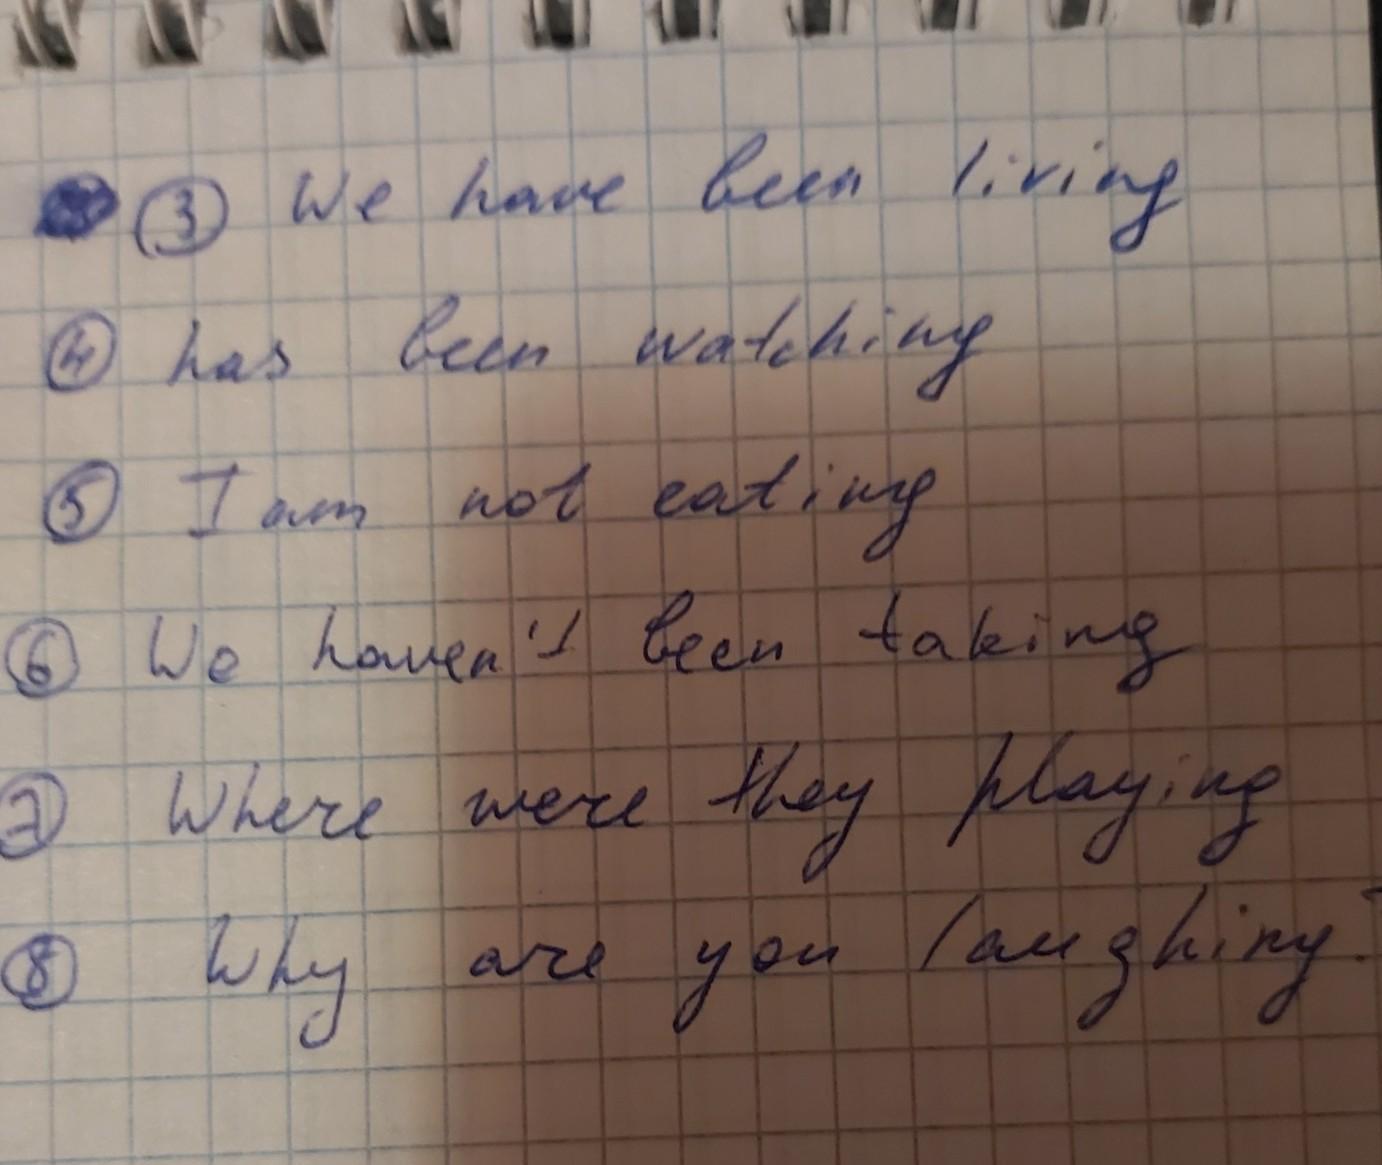 ③ We have been living
④ has been watching
⑤ I am not eating
⑥ We haven't been taking
⑦ Where were they playing
⑧ Why are you laughing?